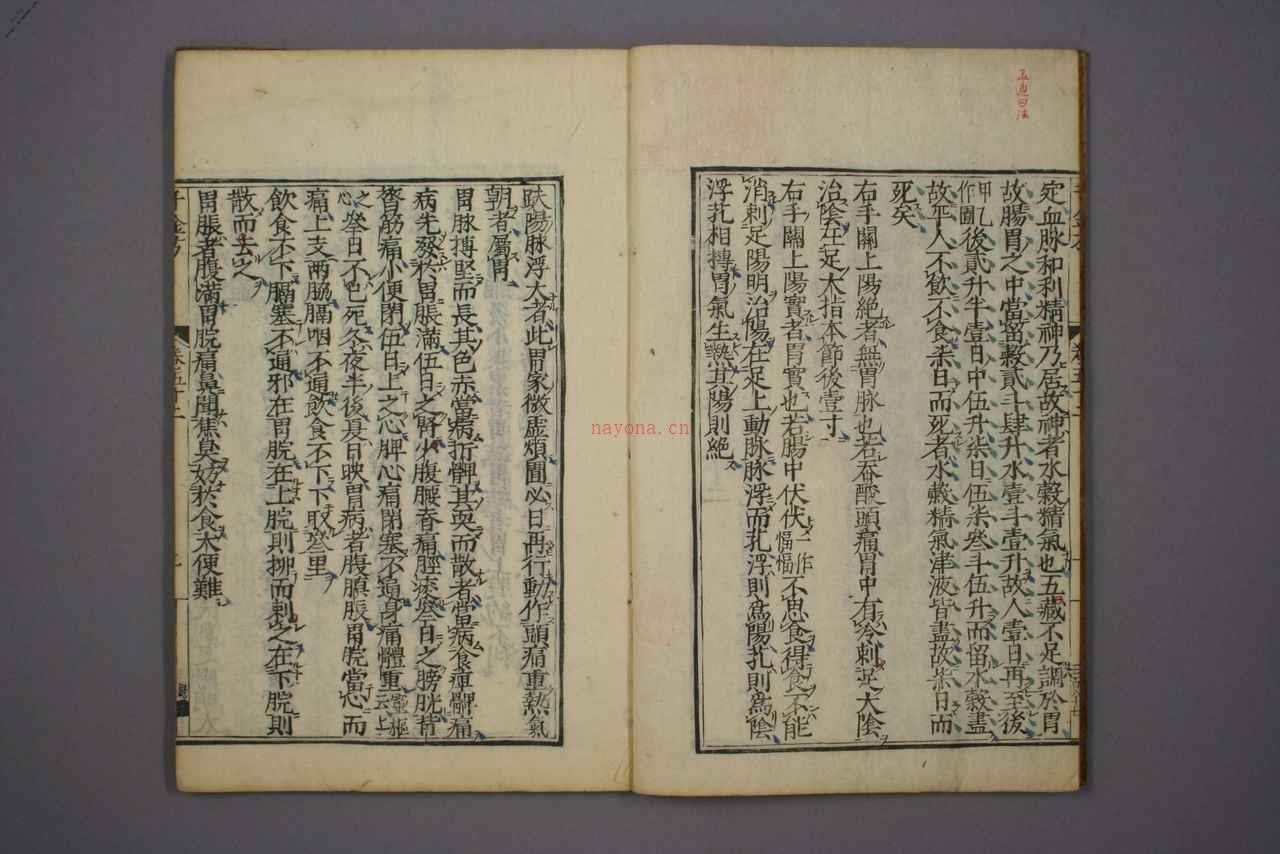 定血脉和利精神乃居故神者水穀精氣也五藏不足調於胃
故腸胃之中當留穀貳斗肆升水壹斗壹升故人壹日再至後
甲乙作圊後貳升半壹日中伍升柒日伍柒叁斗伍升而留水穀盡
故平人不飲不食柒日而死者水穀精氣津液皆盡故柒日而
死矣
右手關上陽絶者無胃脉也若吞酸頭痛胃中有冷刺足太陰
治陰在足大指本節後壹寸
右手關上陽實者胃實也若腸中伏伏一作愊愊不思食得食不能
消刺足陽明治陽在足上動脉脉浮而芤浮則爲陽芤則爲陰
浮芤相摶胃氣生熱其陽則絶
趺陽脉浮大者此胃家微虚煩圊必日再行動作頭痛重熱氣
朝者屬胃
胃脉摶堅而長其色赤當病折髀其耎而散者當病食痺髀痛
病先發於胃脹滿伍日之腎少腹腰脊痛脛痠叁日之膀胱背
膂筋痛小便閉伍日上之心脾心痛閉塞不通身痛體重靈樞云上
之心叁日不已死冬夜半後夏日昳胃病者腹䐜脹胃脘當心而
痛上支兩脇膈咽不通飲食不下下取叁里
飲食不下膈塞不通邪在胃脘在上脘則抑而刺之在下脘則
散而去之
胃脹者腹滿胃脘痛鼻聞焦臭妨於食大便難
千金方
卷五十二
nayona.cn